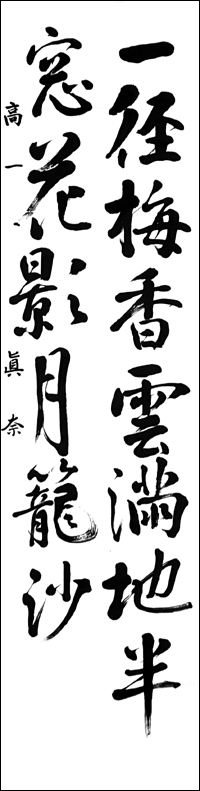 一徑梅香雲満地半
窓花影月籠沙
高一 眞奈